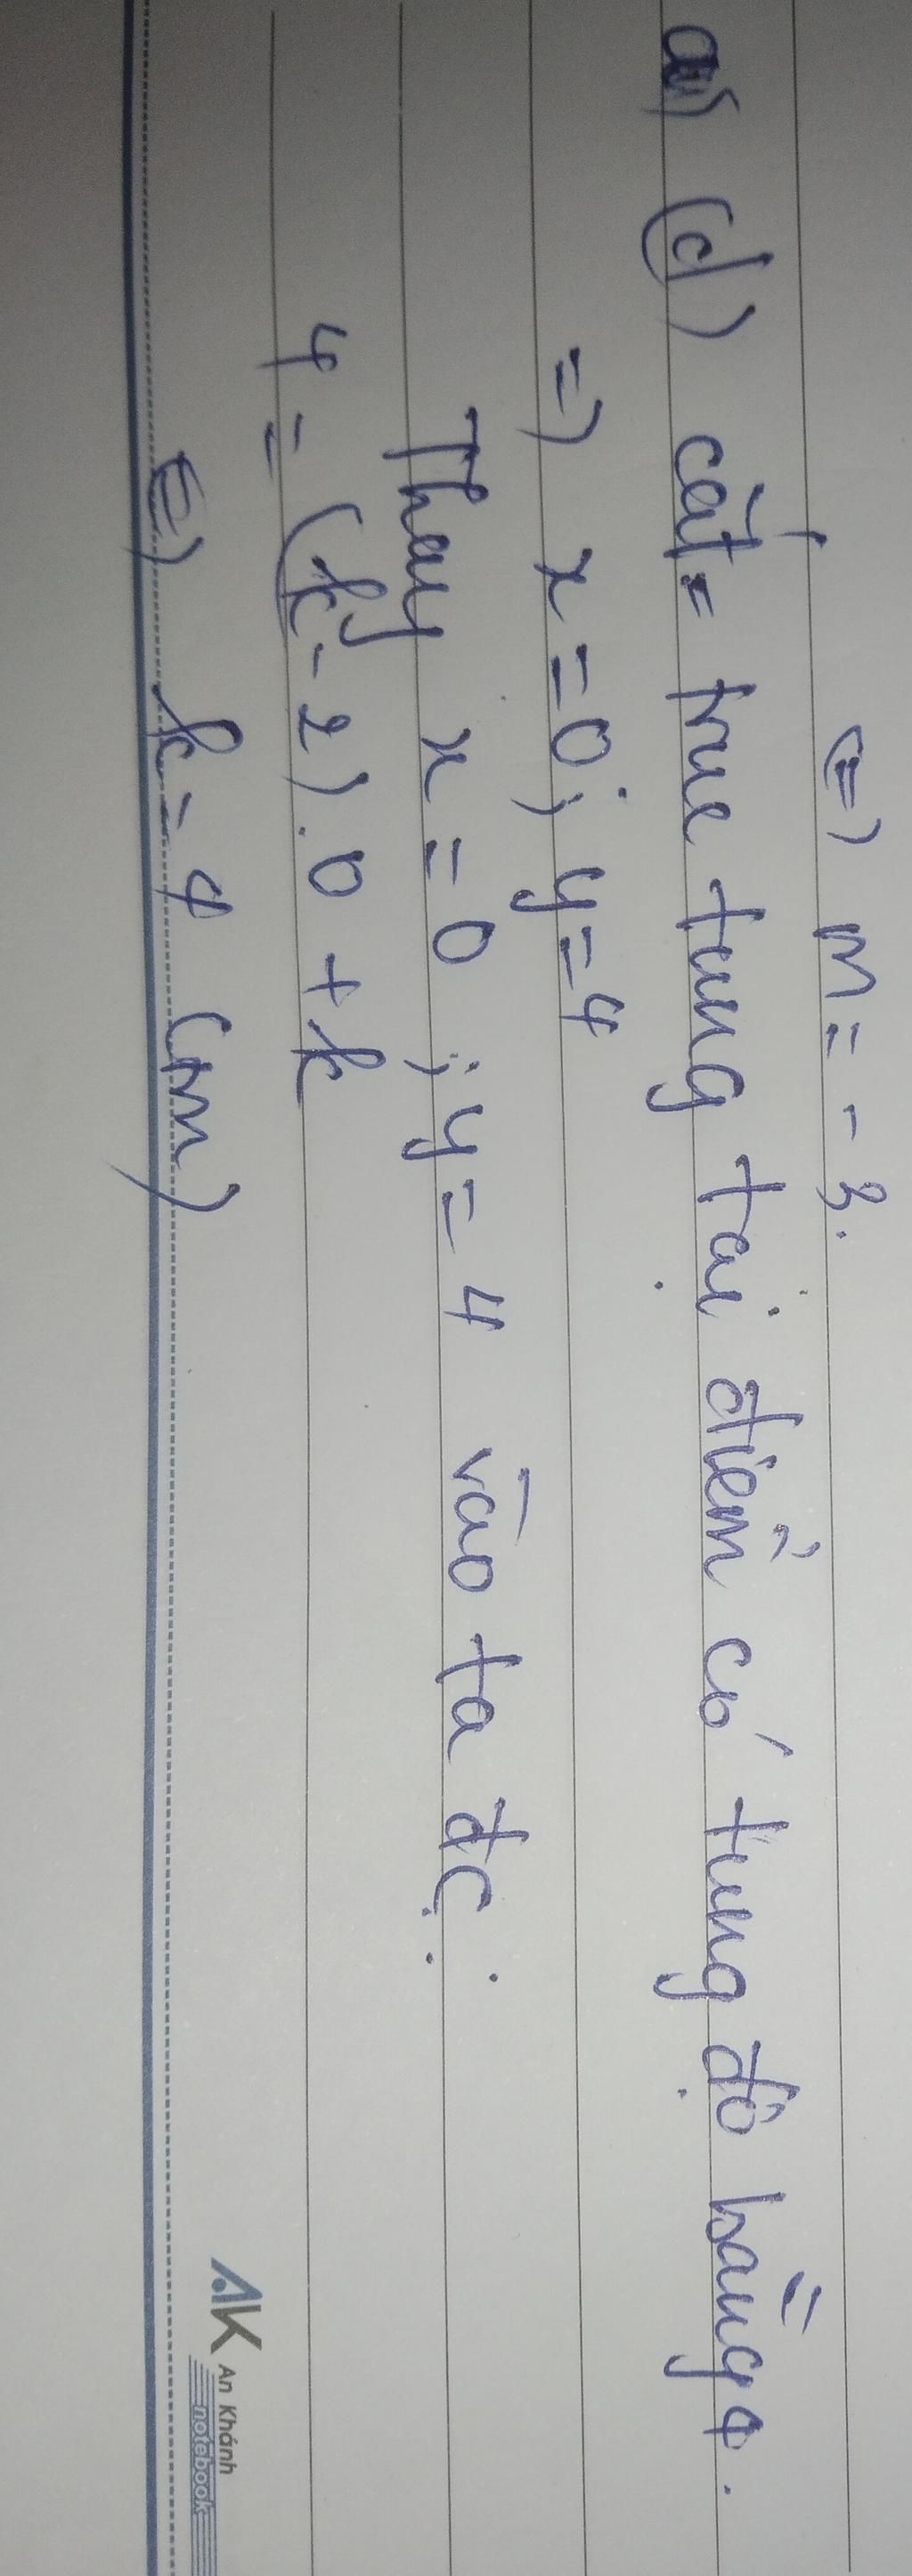 ⇔) m = - 3.
a) (d) cắt trục tung tại điểm có tung độ bằng 4.
=) x = 0; y = 4
Thay x = 0 ; y = 4 vào ta đc:
4 = (k - 2) . 0 + k
⇔) k = 4 (tm)
AK An Khánh
notebook